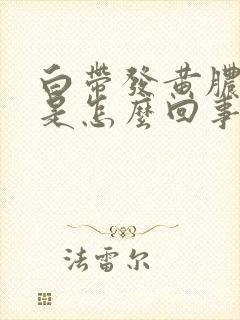 白帶發黃膿
是怎麼回事
法雷尔